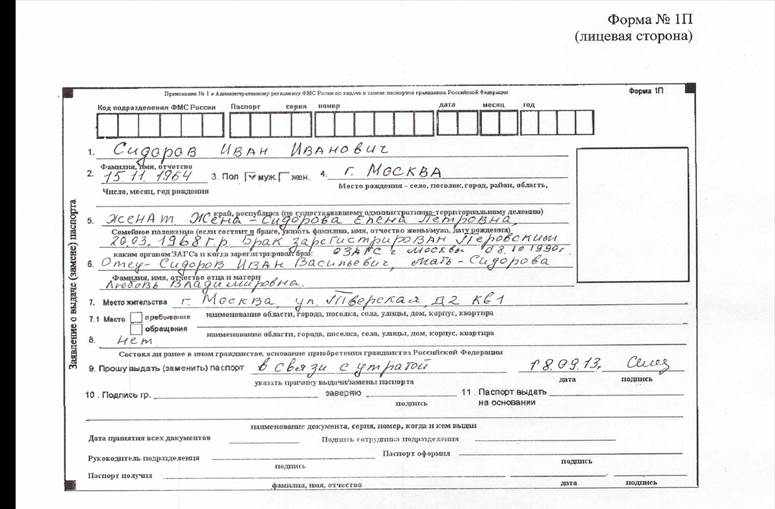 Форма № 1П
(лицевая сторона)
Приложение № 1 к Административному регламенту ФМС России по выдаче и замене паспортов гражданина Российской Федерации
Форма 1П
Код подразделения ФМС России Паспорт серия номер дата месяц год
Заявление о выдаче (замене) паспорта
1. Сидоров Иван Иванович
Фамилия, имя, отчество
2. 15 11 1964 3. Пол муж. жен. 4. г. Москва
Число, месяц, год рождения Место рождения - село, поселок, город, район, область,
край, республика (по существовавшему административно-территориальному делению)
5. женат жена - Сидорова Елена Петровна,
Семейное положение (если состоит в браке, указать фамилию, имя, отчество жены/мужа, дату рождения),
20.03.1968 г.р. брак зарегистрирован Перовским
каким органом ЗАГСа и когда зарегистрирован брак ОЗАГС г Москвы 08 10 1990г.
6. Отец - Сидоров Иван Васильевич, мать - Сидорова
Фамилия, имя, отчество отца и матери
Любовь Владимировна.
7. Место жительства г. Москва, ул. Тверская, д2 кв1
наименование области, города, поселка, села, улицы, дом, корпус, квартира
7.1 Место пребывания
обращения наименование области, города, поселка, села, улицы, дом, корпус, квартира
8. Нет
Состоял ли ранее в ином гражданстве, основание приобретения гражданства Российской Федерации
9. Прошу выдать (заменить) паспорт в связи с утратой 18.09.13,
указать причину выдачи/замены паспорта дата подпись
10. Подпись гр. заверяю 11. Паспорт выдать
подпись на основании
наименование документа, серия, номер, когда и кем выдан
Дата принятия всех документов Подпись сотрудника подразделения
Руководитель подразделения Паспорт оформил
подпись подпись
Паспорт получил
фамилия, имя, отчество дата подпись